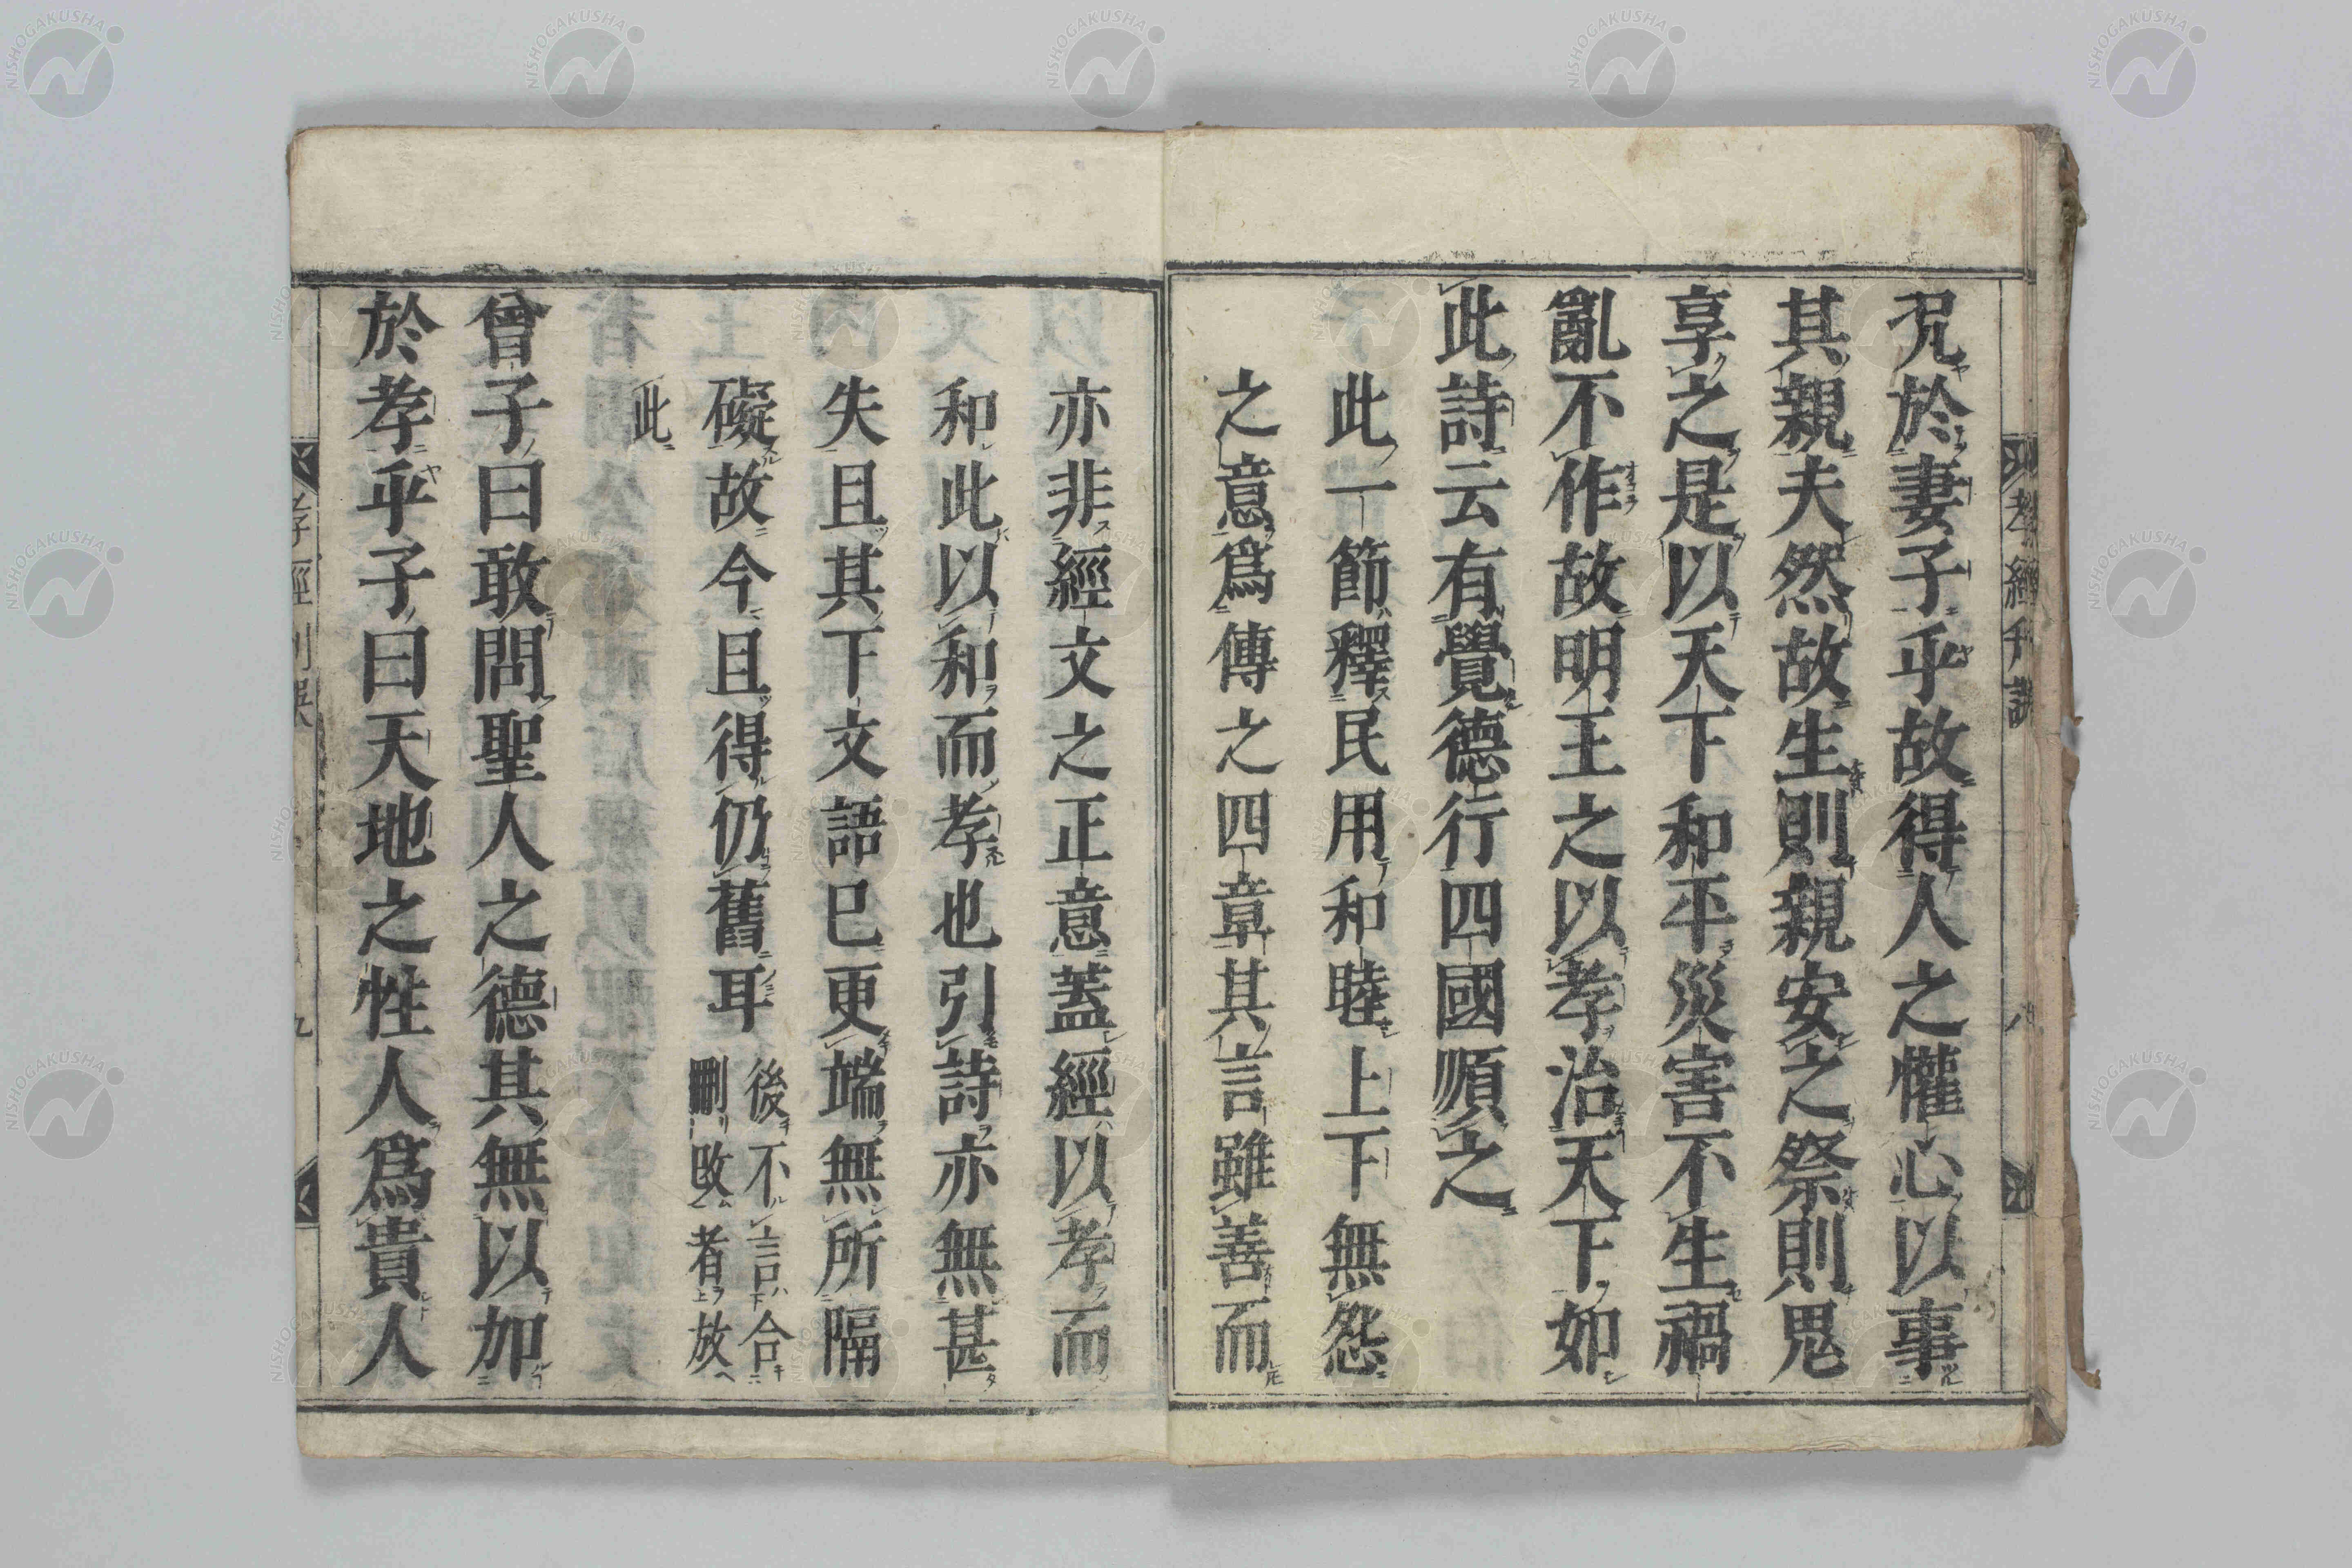 孝經刊誤
八
況於妻子乎故得人之懽心以事
其親夫然故生則親安之祭則鬼
享之是以天下和平災害不生禍
亂不作故明王之以孝治天下如
此詩云有覺德行四國順之
此一節釋民用和睦上下無怨
之意爲傳之四章其言雖善而
亦非經文之正意蓋經以孝而
和此以和而孝也引詩亦無甚
失且其下文語已更端無所隔
礙故今且得仍舊耳後不言合
刪改者放
此
曾子曰敢問聖人之德其無以加
於孝乎子曰天地之性人爲貴人
孝經刊誤
九
NISHOGAKUSHA